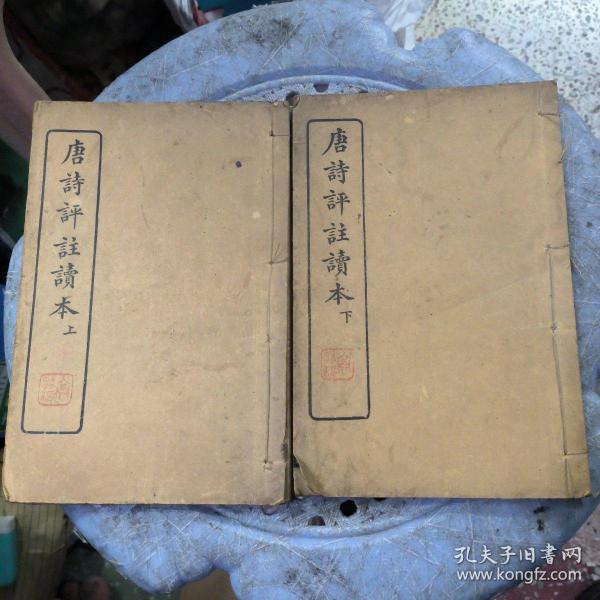 唐詩評註讀本上
唐詩評註讀本下
孔夫子旧書网
www.kongfz.com